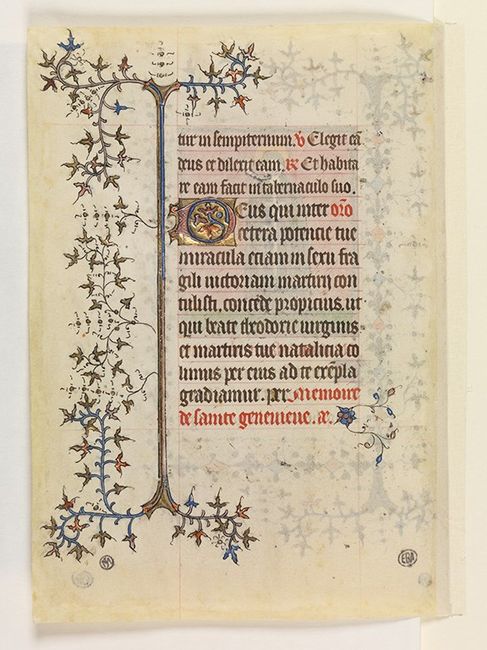 tur in sempiternum. V Elegit eā
deus et dilexit eam. R Et habita
re eam facit in tabernaculo suo.
Deus qui inter oro
cetera potencie tue
miracula etiam in sexu fra
gili victoriam martirii con
tulisti. concede propicius. ut
qui beate theodorie virginis
et martiris tue natalicia co
limus per eius ad te exēpla
gradiamur. per. Memoire
de sainte genevieve. ā.
EBA